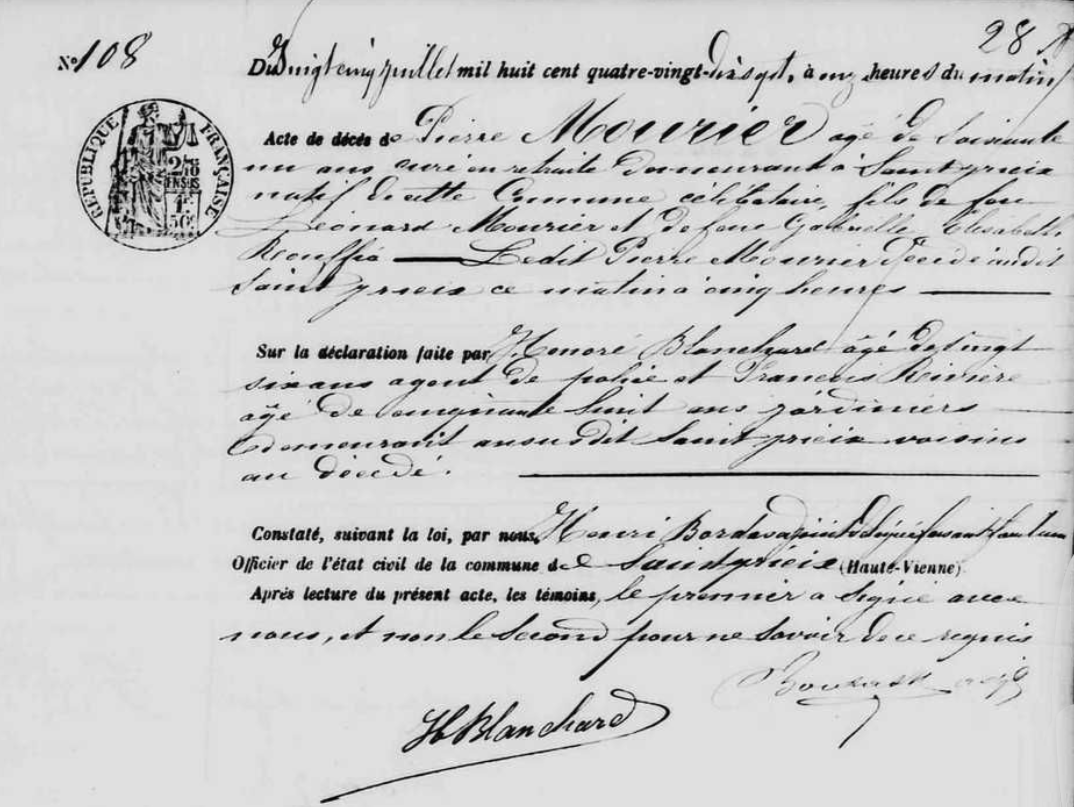 28
N° 108
Du vingt cinq juillet mil huit cent quatre-vingt-dix sept, à onze heures du matin
RÉPUBLIQUE FRANÇAISE
Acte de décès de Pierre Mourier âgé de soixante
un ans curé en retraite demeurant à Saint yrieix
natif de cette Commune célibataire, fils de feu
Léonard Mourier et de feue Gabrielle Elisabeth
Rouffia Ledit Pierre Mourier décédé audit
Saint yrieix ce matin à cinq heures
Sur la déclaration faite par Honoré Blanchard âgé de vingt
six ans agent de police et Francois Rivière
âgé de cinquante huit ans jardiniers
demeurant ausudit Saint yrieix voisins
au décédé.
Constaté, suivant la loi, par nous, Henri Bordas adjoint délégué faisant fonctions
Officier de l'état civil de la commune de Saint yrieix (Haute-Vienne)
Après lecture du présent acte, les témoins, le premier a signé avec
nous, et non le second pour ne savoir de ce requis
H Blanchard